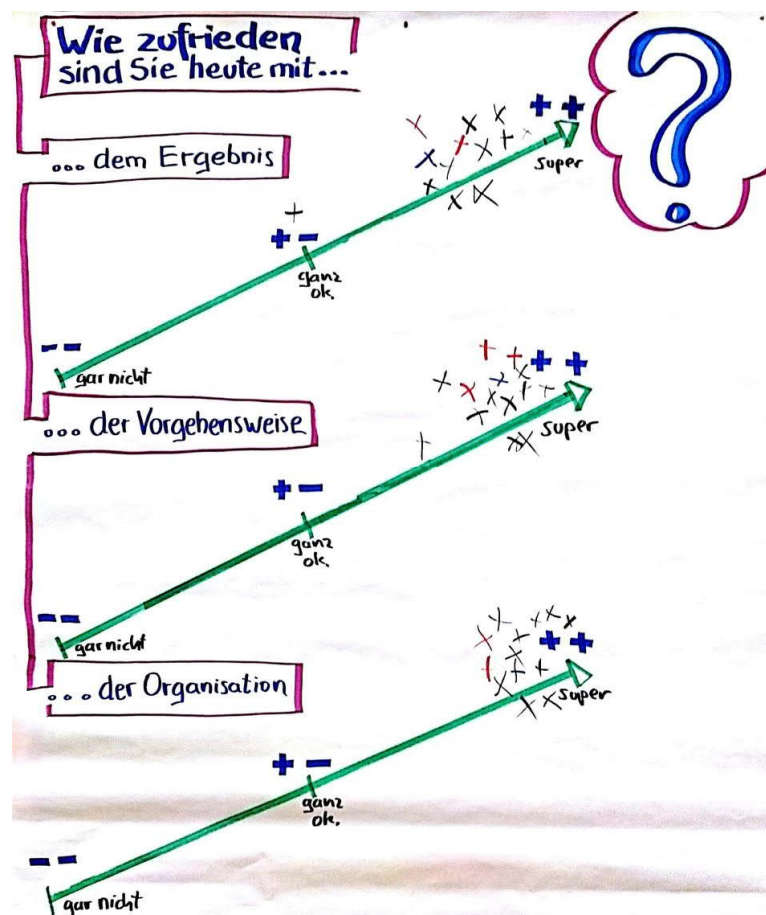 Wie zufrieden
sind Sie heute mit...
?
... dem Ergebnis
++
super
+-
ganz
ok.
--
gar nicht
... der Vorgehensweise
++
super
+-
ganz
ok.
--
gar nicht
... der Organisation
++
super
+-
ganz
ok.
--
gar nicht